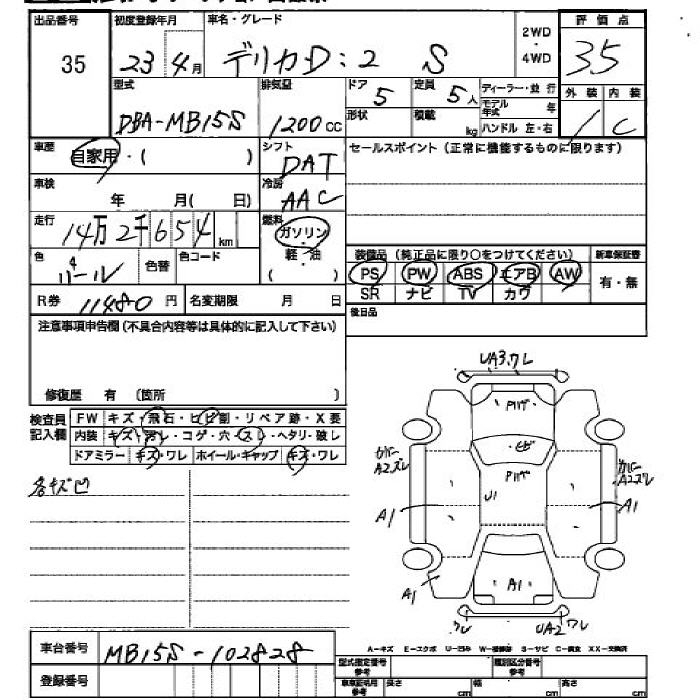 出品番号 初度登録年月 車名・グレード 2WD・4WD 評価点
35 23 4月 デリカD:2 S 3.5
型式 排気量 ドア 定員 ディーラー・並行 外装 内装
DBA-MB15S 1200cc 5 5人 モデル年式 年 1 C
形状 積載 kg ハンドル 左・右
車歴 自家用・( ) シフト DAT セールスポイント(正常に機能するものに限ります)
車検 年 月(日) 冷房 AAC
走行 14万2千654km 燃料 ガソリン・軽・油( )
色 色替 色コード
装備品(純正品に限り○をつけてください) 新車保証書
PS PW ABS エアB AW 有・無
SR ナビ TV カワ
R券 11480円 名変期限 月 日
後日品
注意事項申告欄(不具合内容等は具体的に記入して下さい)
修復歴 有(箇所 )
検査員記入欄 FW キズ・飛石・ヒビ割・リペア跡・X要
内装 キズ・汚レ・コゲ・穴・スレ・ヘタリ・破レ
ドアミラー キズ・ワレ ホイール・キャップ キズ・ワレ
各キズ凹
UA3.ワレ
A2ズレ
A2ズレ
U1
A1
A1
A1
A1
ワレ
UA2ワレ
A-キズ E-エクボ U-凹み W-補修跡 S-サビ C-腐食 XX-交換済
車台番号 MB15S-102828
型式指定番号参考 類別区分番号参考
登録番号
車車証明用参考 長さ cm 幅 cm 高さ cm